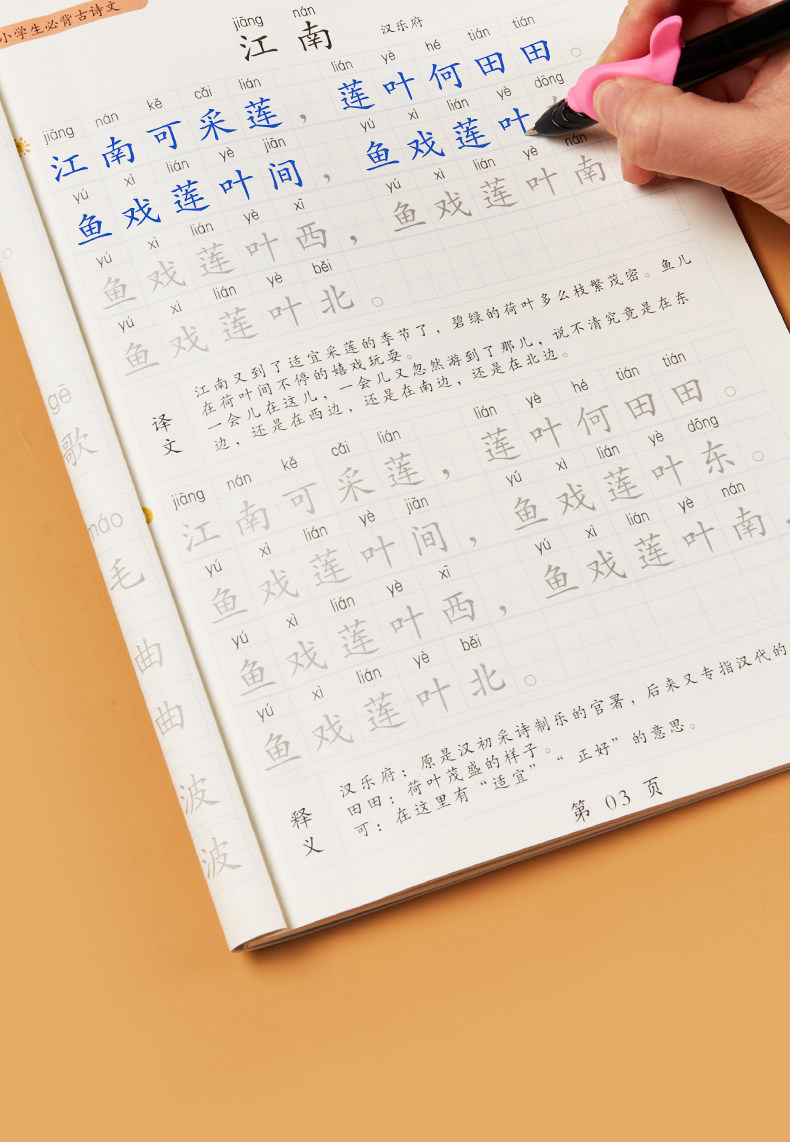 小学生必背古诗文
jiāng nán
江南 汉乐府
jiāng nán kě cǎi lián lián yè hé tián tián
江南可采莲，莲叶何田田。
yú xì lián yè jiān yú xì lián yè dōng
鱼戏莲叶间，鱼戏莲叶
yú xì lián yè xī yú xì lián yè nán
鱼戏莲叶西，鱼戏莲叶南
yú xì lián yè běi
鱼戏莲叶北。
译文
江南又到了适宜采莲的季节了，碧绿的荷叶多么枝繁茂密。鱼儿
在荷叶间不停的嬉戏玩耍。
一会儿在这儿，一会儿又忽然游到了那儿，说不清究竟是在东
边，还是在西边，还是在南边，还是在北边。
jiāng nán kě cǎi lián lián yè hé tián tián
江南可采莲，莲叶何田田。
yú xì lián yè jiān yú xì lián yè dōng
鱼戏莲叶间，鱼戏莲叶东。
yú xì lián yè xī yú xì lián yè nán
鱼戏莲叶西，鱼戏莲叶南，
yú xì lián yè běi
鱼戏莲叶北。
释义
汉乐府：原是汉初采诗制乐的官署，后来又专指汉代的
田田：荷叶茂盛的样子。
可：在这里有“适宜”“正好”的意思。
第 03 页
gē
歌
máo
毛
曲
曲
波
波